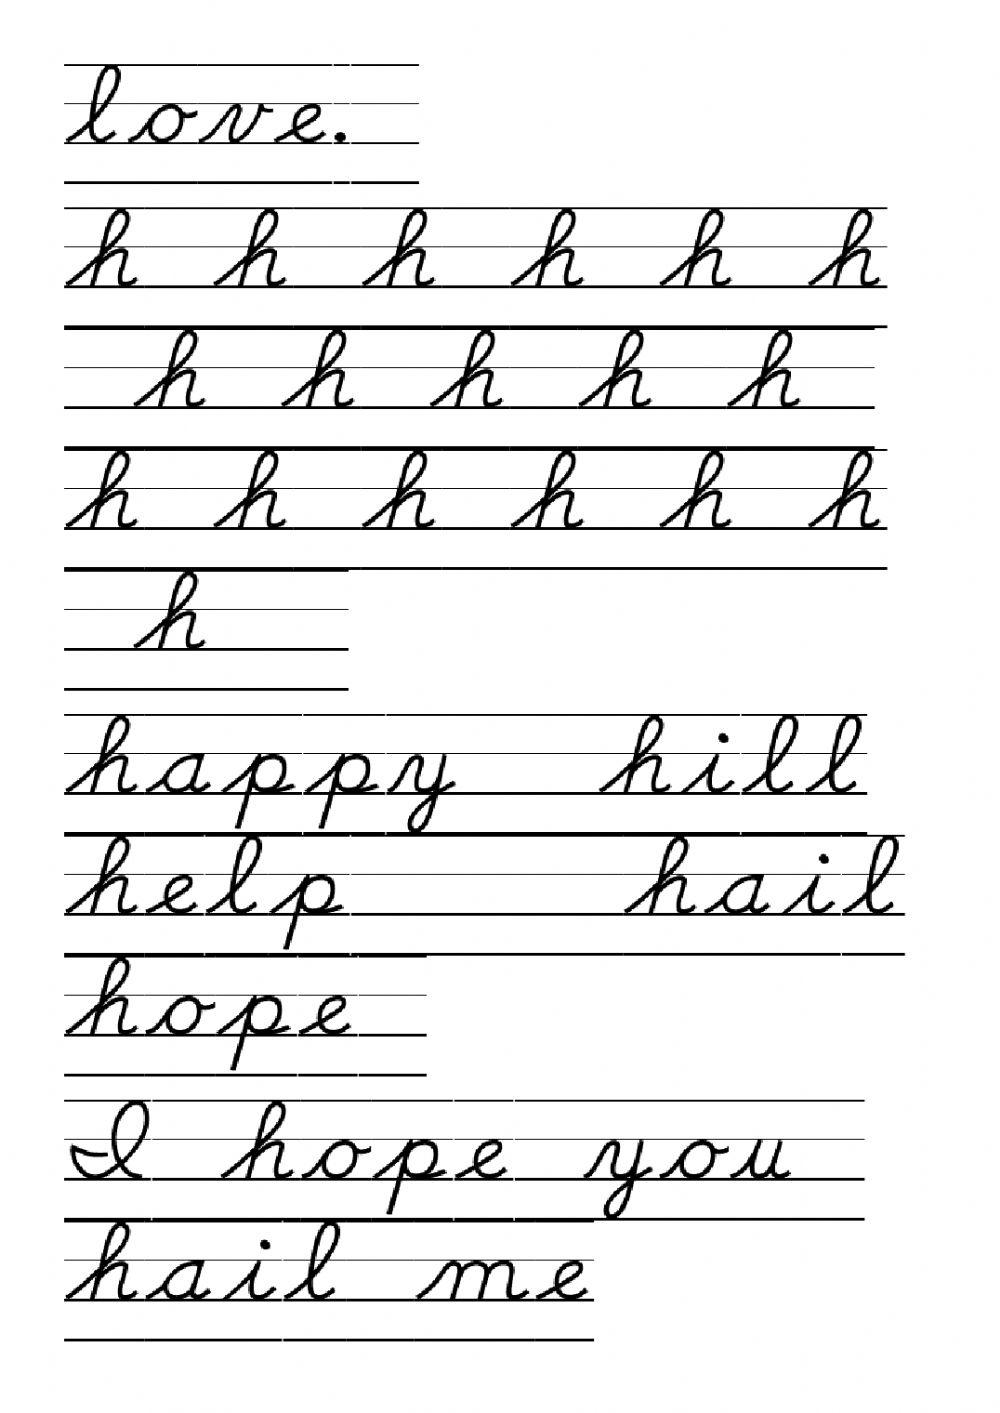 love.
h h h h h h
h h h h h
h h h h h h
h
happy hill
help hail
hope
I hope you
hail me